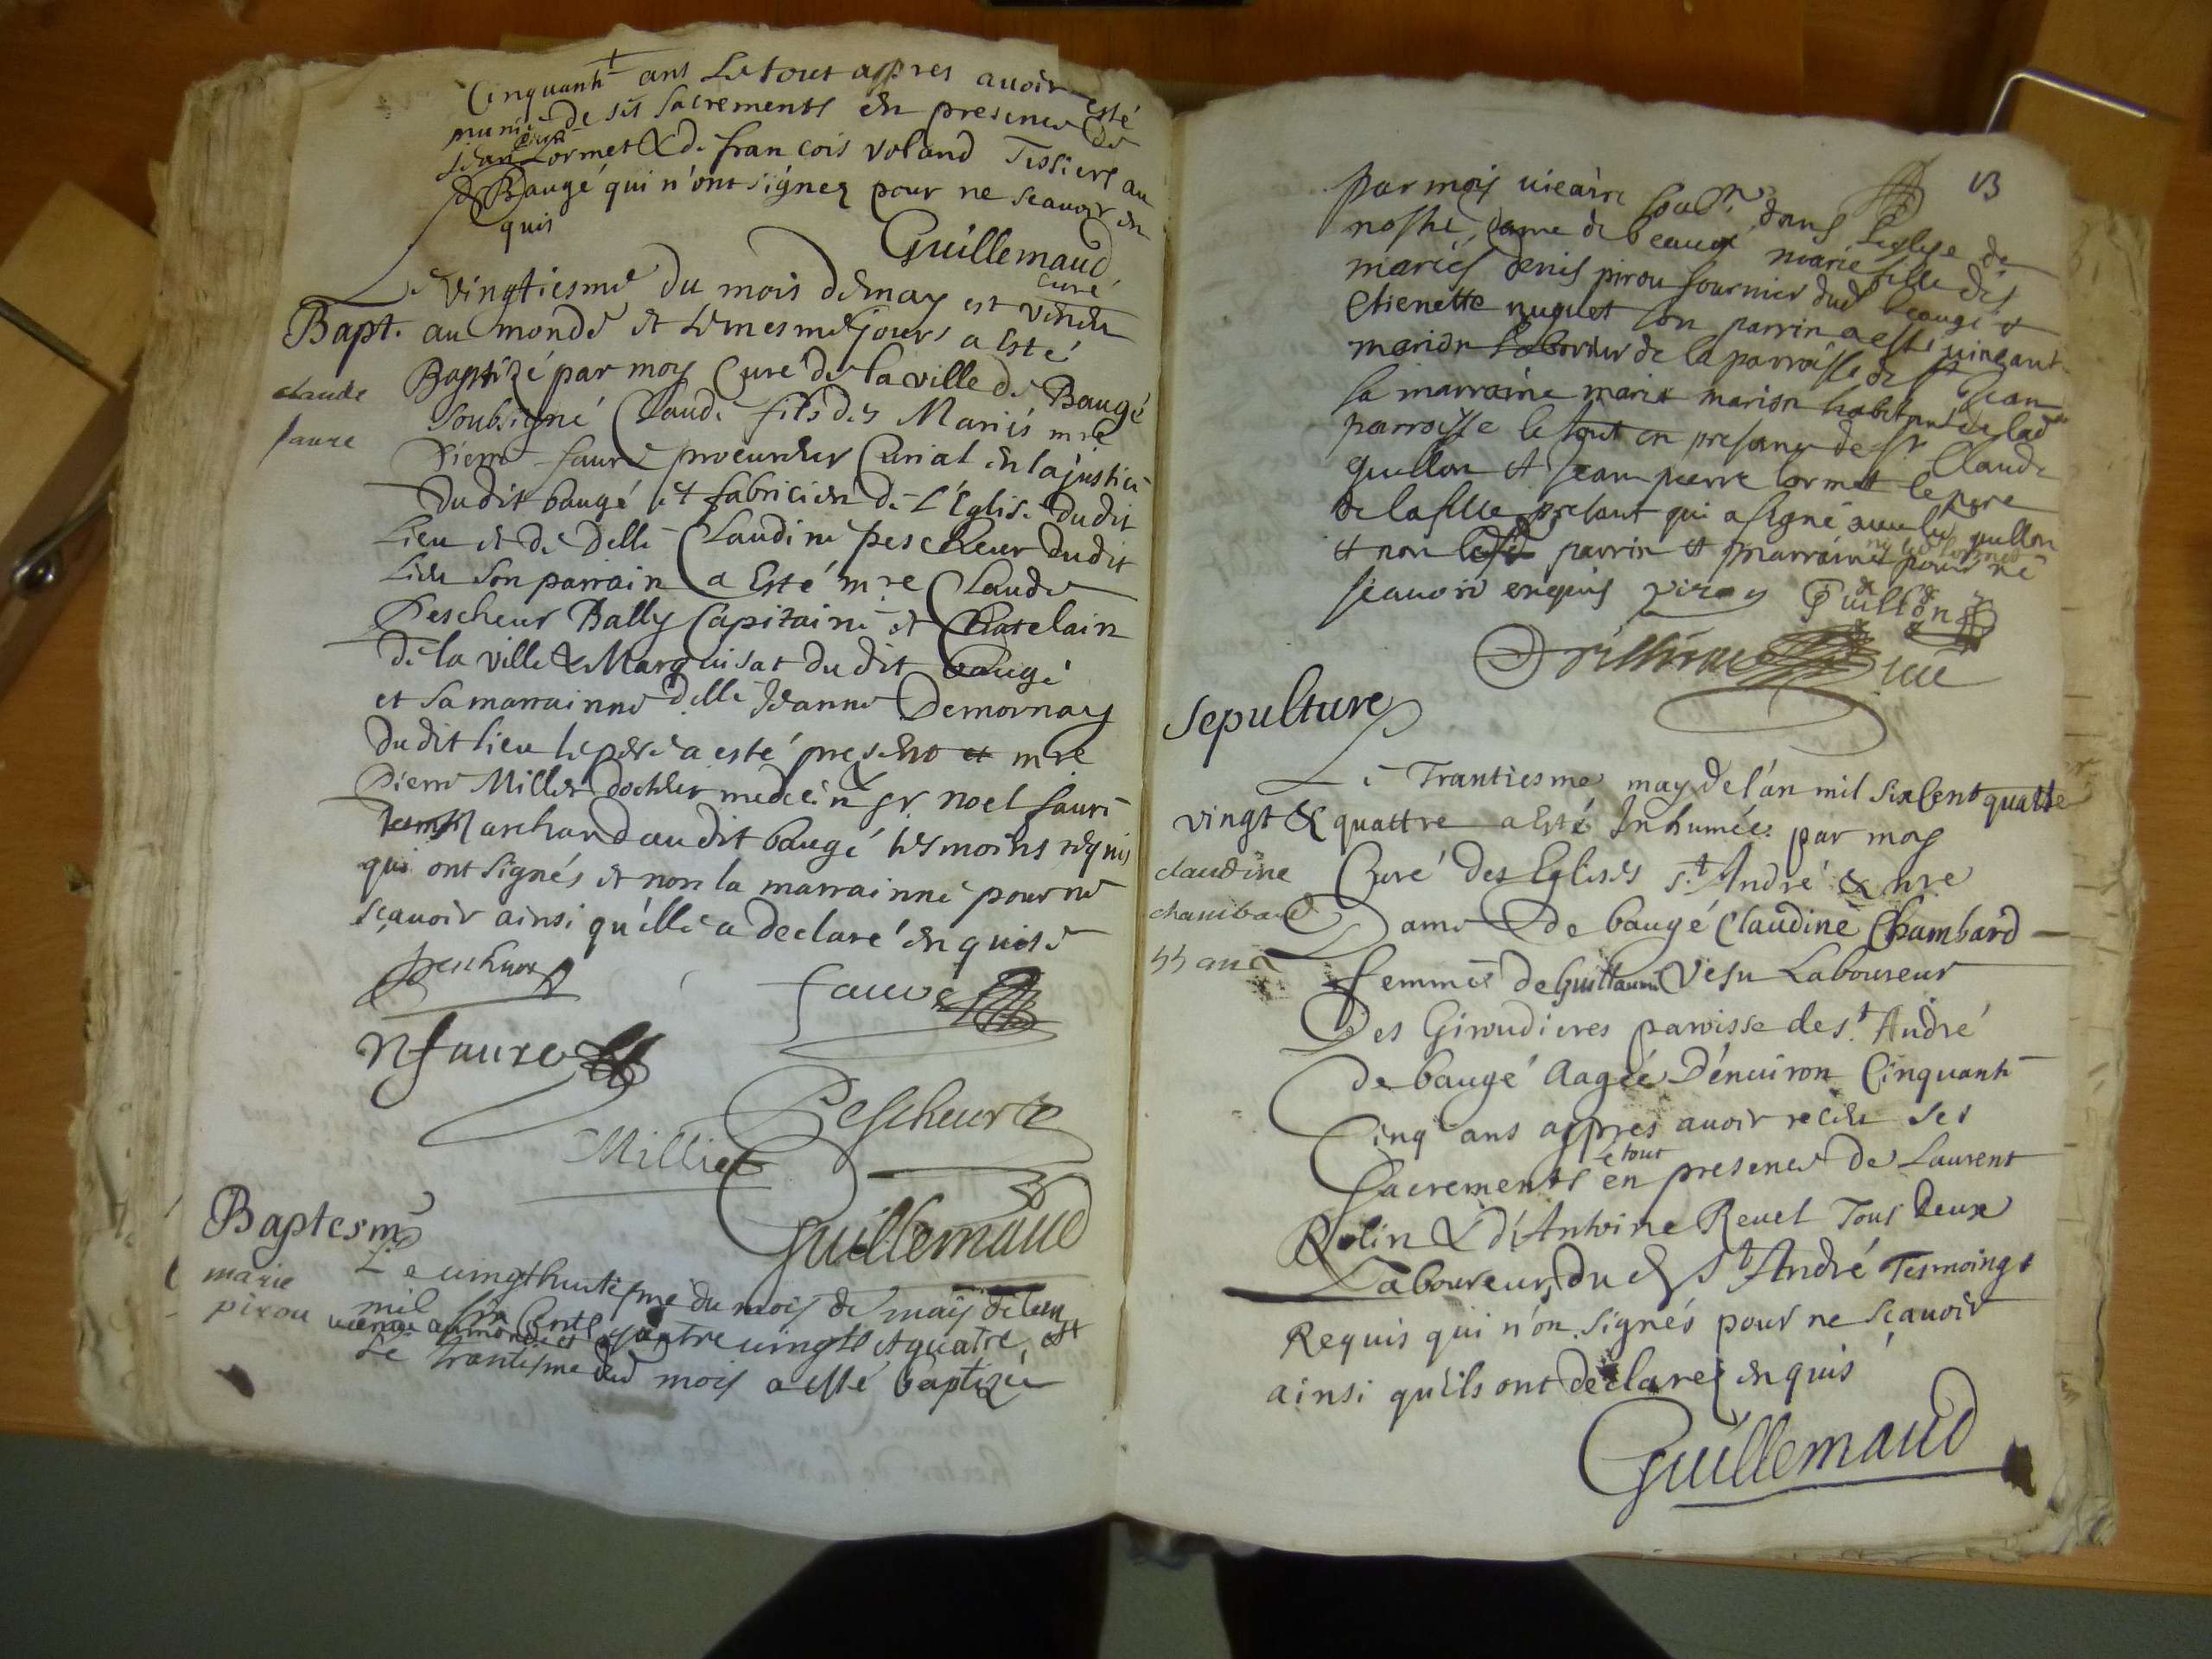 Cinquante ans Le tout appres avoir esté
munie de ses sacrements en presence de
Jean Cormet & de françois voland Tissiers au
d Baugé qui n'ont signez pour ne scavoir en
quis
Guillemaud
curé
Bapt.
claude
faure
Le vingtiesme du mois de may est venu
au monde et le mesme jour a Esté
Baptizé par moy Curé de la ville de Baugé
soubsigné Claude fils des Mariés mre
Pierre faure procureur Curial en la justice
du dit baugé et fabricien de L'Eglise du dit
Lieu et de Delle Claudine pescheur dudit
Lieu son parrain a Esté mre Claude
Pescheur Bally Capitaine et Chatelain
de la ville & Marquisat du dit baugé
et sa marrainne delle Jeanne Demornay
du dit lieu le pere a esté present et mre
Pierre Millet docteur medecin & sr noel faure
Marchand au dit baugé tesmoins requis
qui ont signés et non la marrainne pour ne
sçavoir ainsi qu'elle a declaré enquise
pescheur
faure
N faure
Pescheur
Milliet
Guillemaud
Baptesme
marie
pirou
Le vingt huitiesme du mois de may de l'an
mil six Cents quatre vingts et quatre est
venue au monde et
Le trantiesme dud mois a esté baptizée
13
par moy vicaire soubne dans l'eglise de
nostre dame de beaugé marie fille des
mariés denis pirou fournier dud beaugé et
etienette nuguet son parrin a esté vincent
marion de la parroisse de st Jean
la marraine marie marion habitante de lad
parroisse le tout en presance de sr Claude
guillon et Jean pierre Cormet le pere
de la fille presant qui a signé avec led guillon
et non parrin et marraine ny led Cormet pour ne
scavoir enquis pirou Guillon
Sepulture
claudine
chambard
55 ans
Le Trantiesme may de l'an mil six Cent quattre
vingt & quattre a Esté Inhumée par moy
Curé des Eglises st. André & nre
Dame de baugé Claudine Chambard
femme de Guillaume Vesu Laboureur
Des Giroudieres paroisse de st. André
De baugé Aagée D'environ Cinquante
Cinq ans appres avoir receu ses
Sacrements Le tout en presence de Laurent
Rolin & d'Antoine Revel Tous deux
Laboureurs du d st André Tesmoings
Requis qui n'on signés pour ne sçavoir
ainsi qu'ils ont declarez enquis
Guillemaud